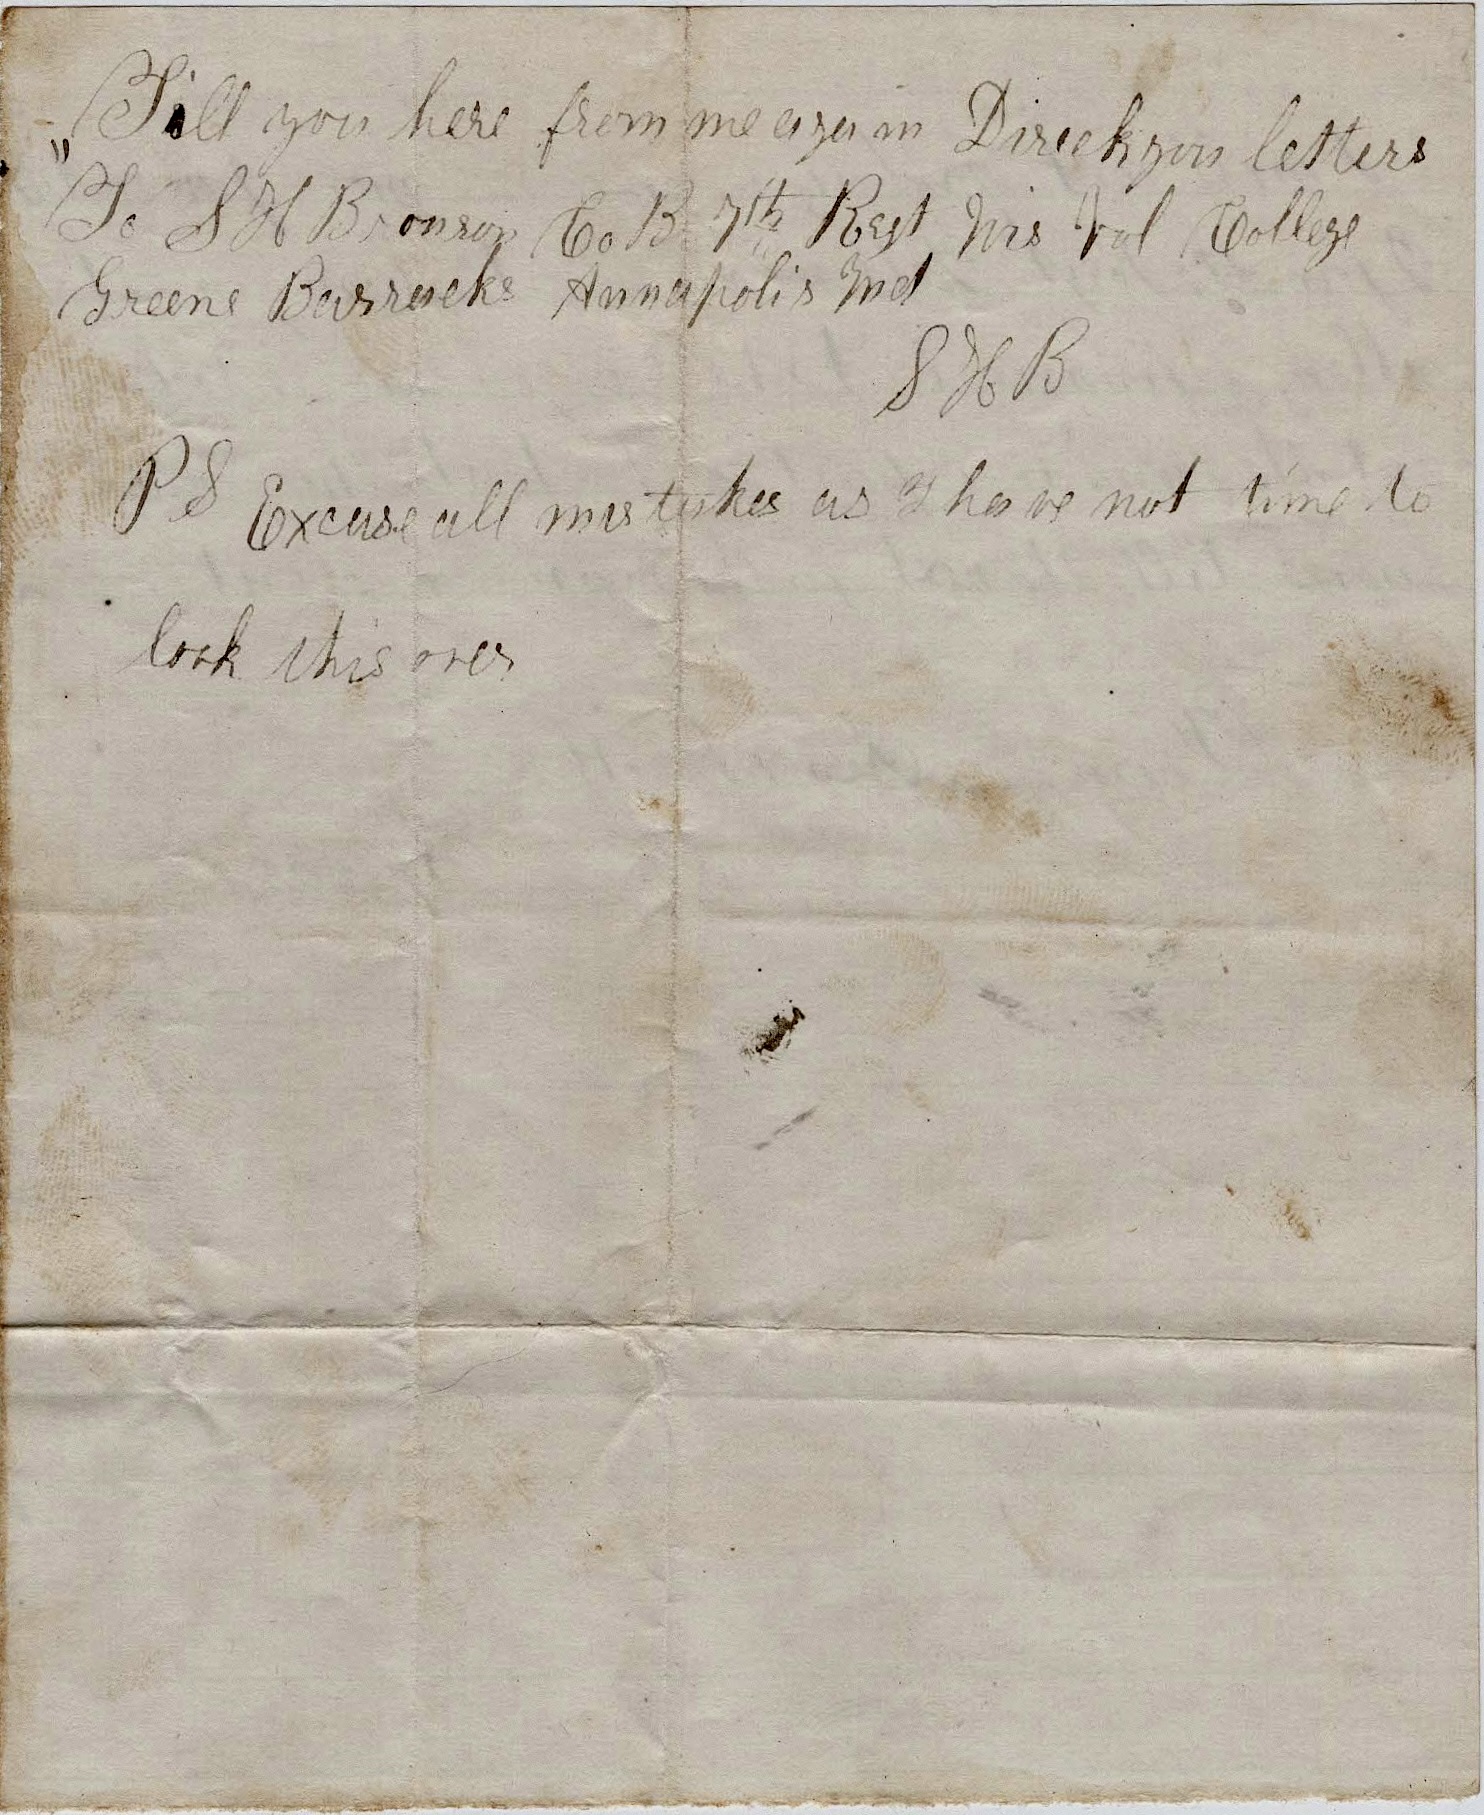 " Till you here from me again Direck you letters
To S H Bronson Co B 7th Regt Wis Vol College
Greene Barracks Annapolis Md
S H B
P S Excuse all mistakes as I have not time to
look this over